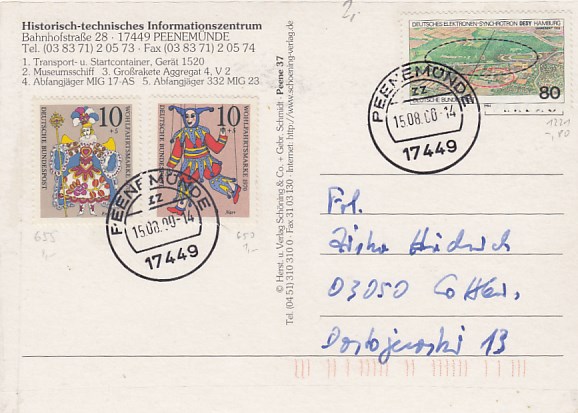 Historisch-technisches Informationszentrum
Bahnhofstraße 28 · 17449 PEENEMÜNDE
Tel. (03 83 71) 2 05 73 · Fax (03 83 71) 2 05 74
1. Transport- u. Startcontainer, Gerät 1520
2. Museumsschiff 3. Großrakete Aggregat 4, V 2
4. Abfangjäger MIG 17-AS 5. Abfangjäger 332 MIG 23
10
+5
DEUTSCHE BUNDESPOST
WOHLFAHRTSMARKE 1970
10
+5
DEUTSCHE BUNDESPOST
WOHLFAHRTSMARKE 1970
PEENEMÜNDE
zz
15.08.00-14
17449
655
1,-
650
1,-
© Herst. u. Verlag Schöning & Co. + Gebr. Schmidt · Peene 37
Tel. (04 51) 310 310 0 · Fax 31 03 130 · Internet: http://www.schoening-verlag.de
2,-
DEUTSCHES ELEKTRONEN-SYNCHROTRON DESY HAMBURG
DEUTSCHE BUNDESPOST
80
PEENEMÜNDE
zz
15.08.00-14
17449
1221
Frl.
03050 Cottbus
Dostojewski 13